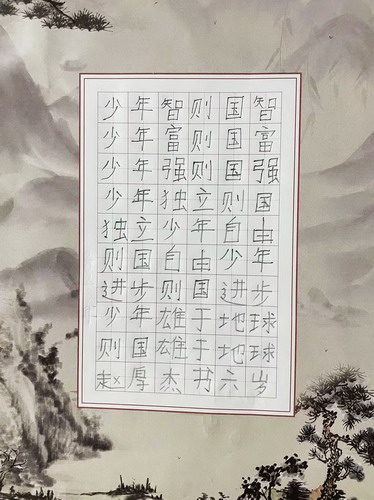 少年智则国智
少年富则国富
少年强则国强
少年独立则国
独立少年自由
则国自由少年
进步则国进步
少年雄于地球
则国雄于地球
赵厚杰书六岁